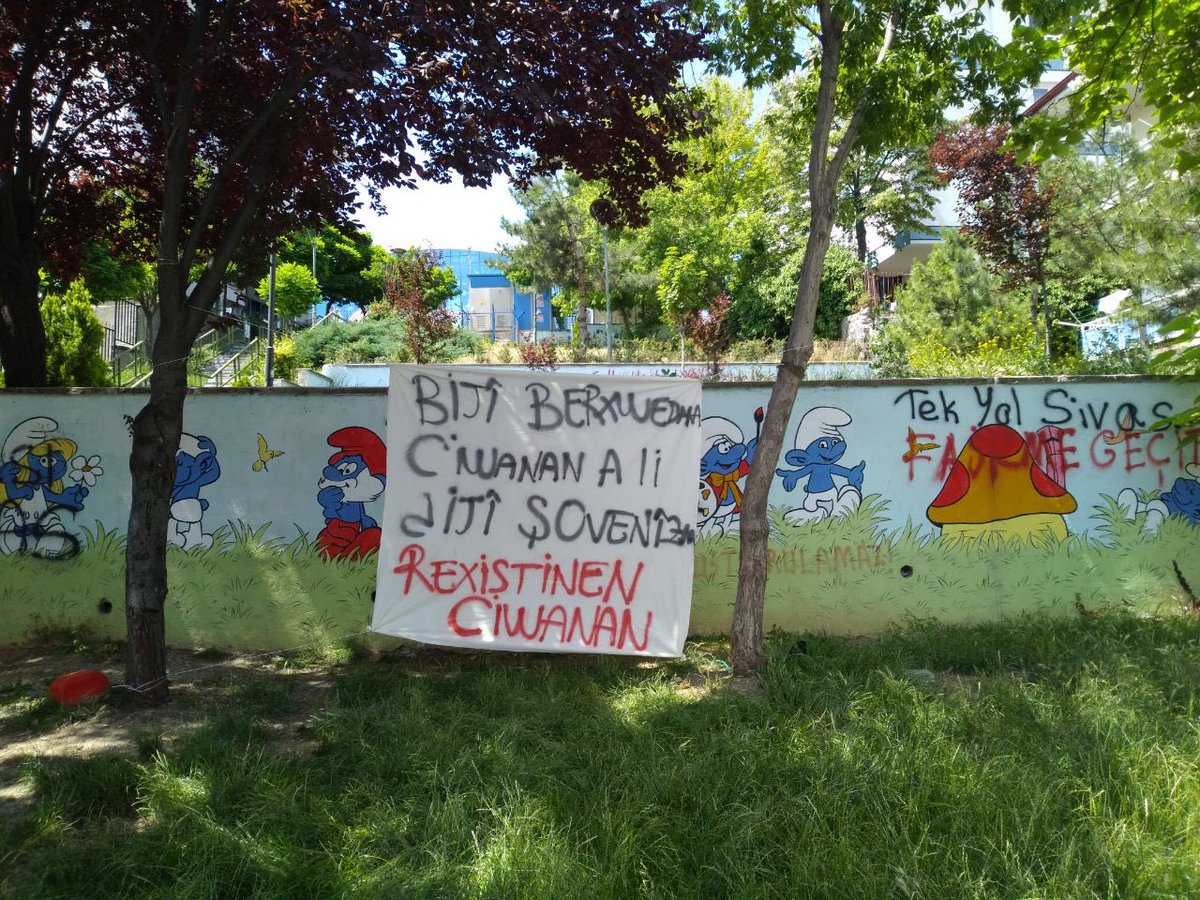 BIJÎ BERXWEDANA
CIWANAN A li
dIJÎ ŞOVENÎZM
REXIŞTINEN
CIWANAN
Tek Yol Sivas
FAŞİZME GEÇİT